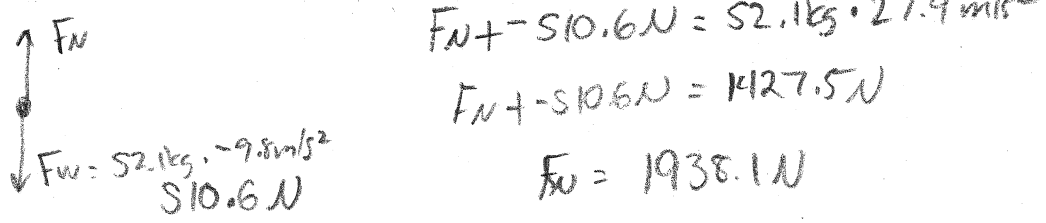 F_N
F_W = 52.1kg · -9.8m/s²
510.6 N
F_N + -510.6N = 52.1kg · 27.4 m/s²
F_N + -510.6N = 1427.5N
F_N = 1938.1N